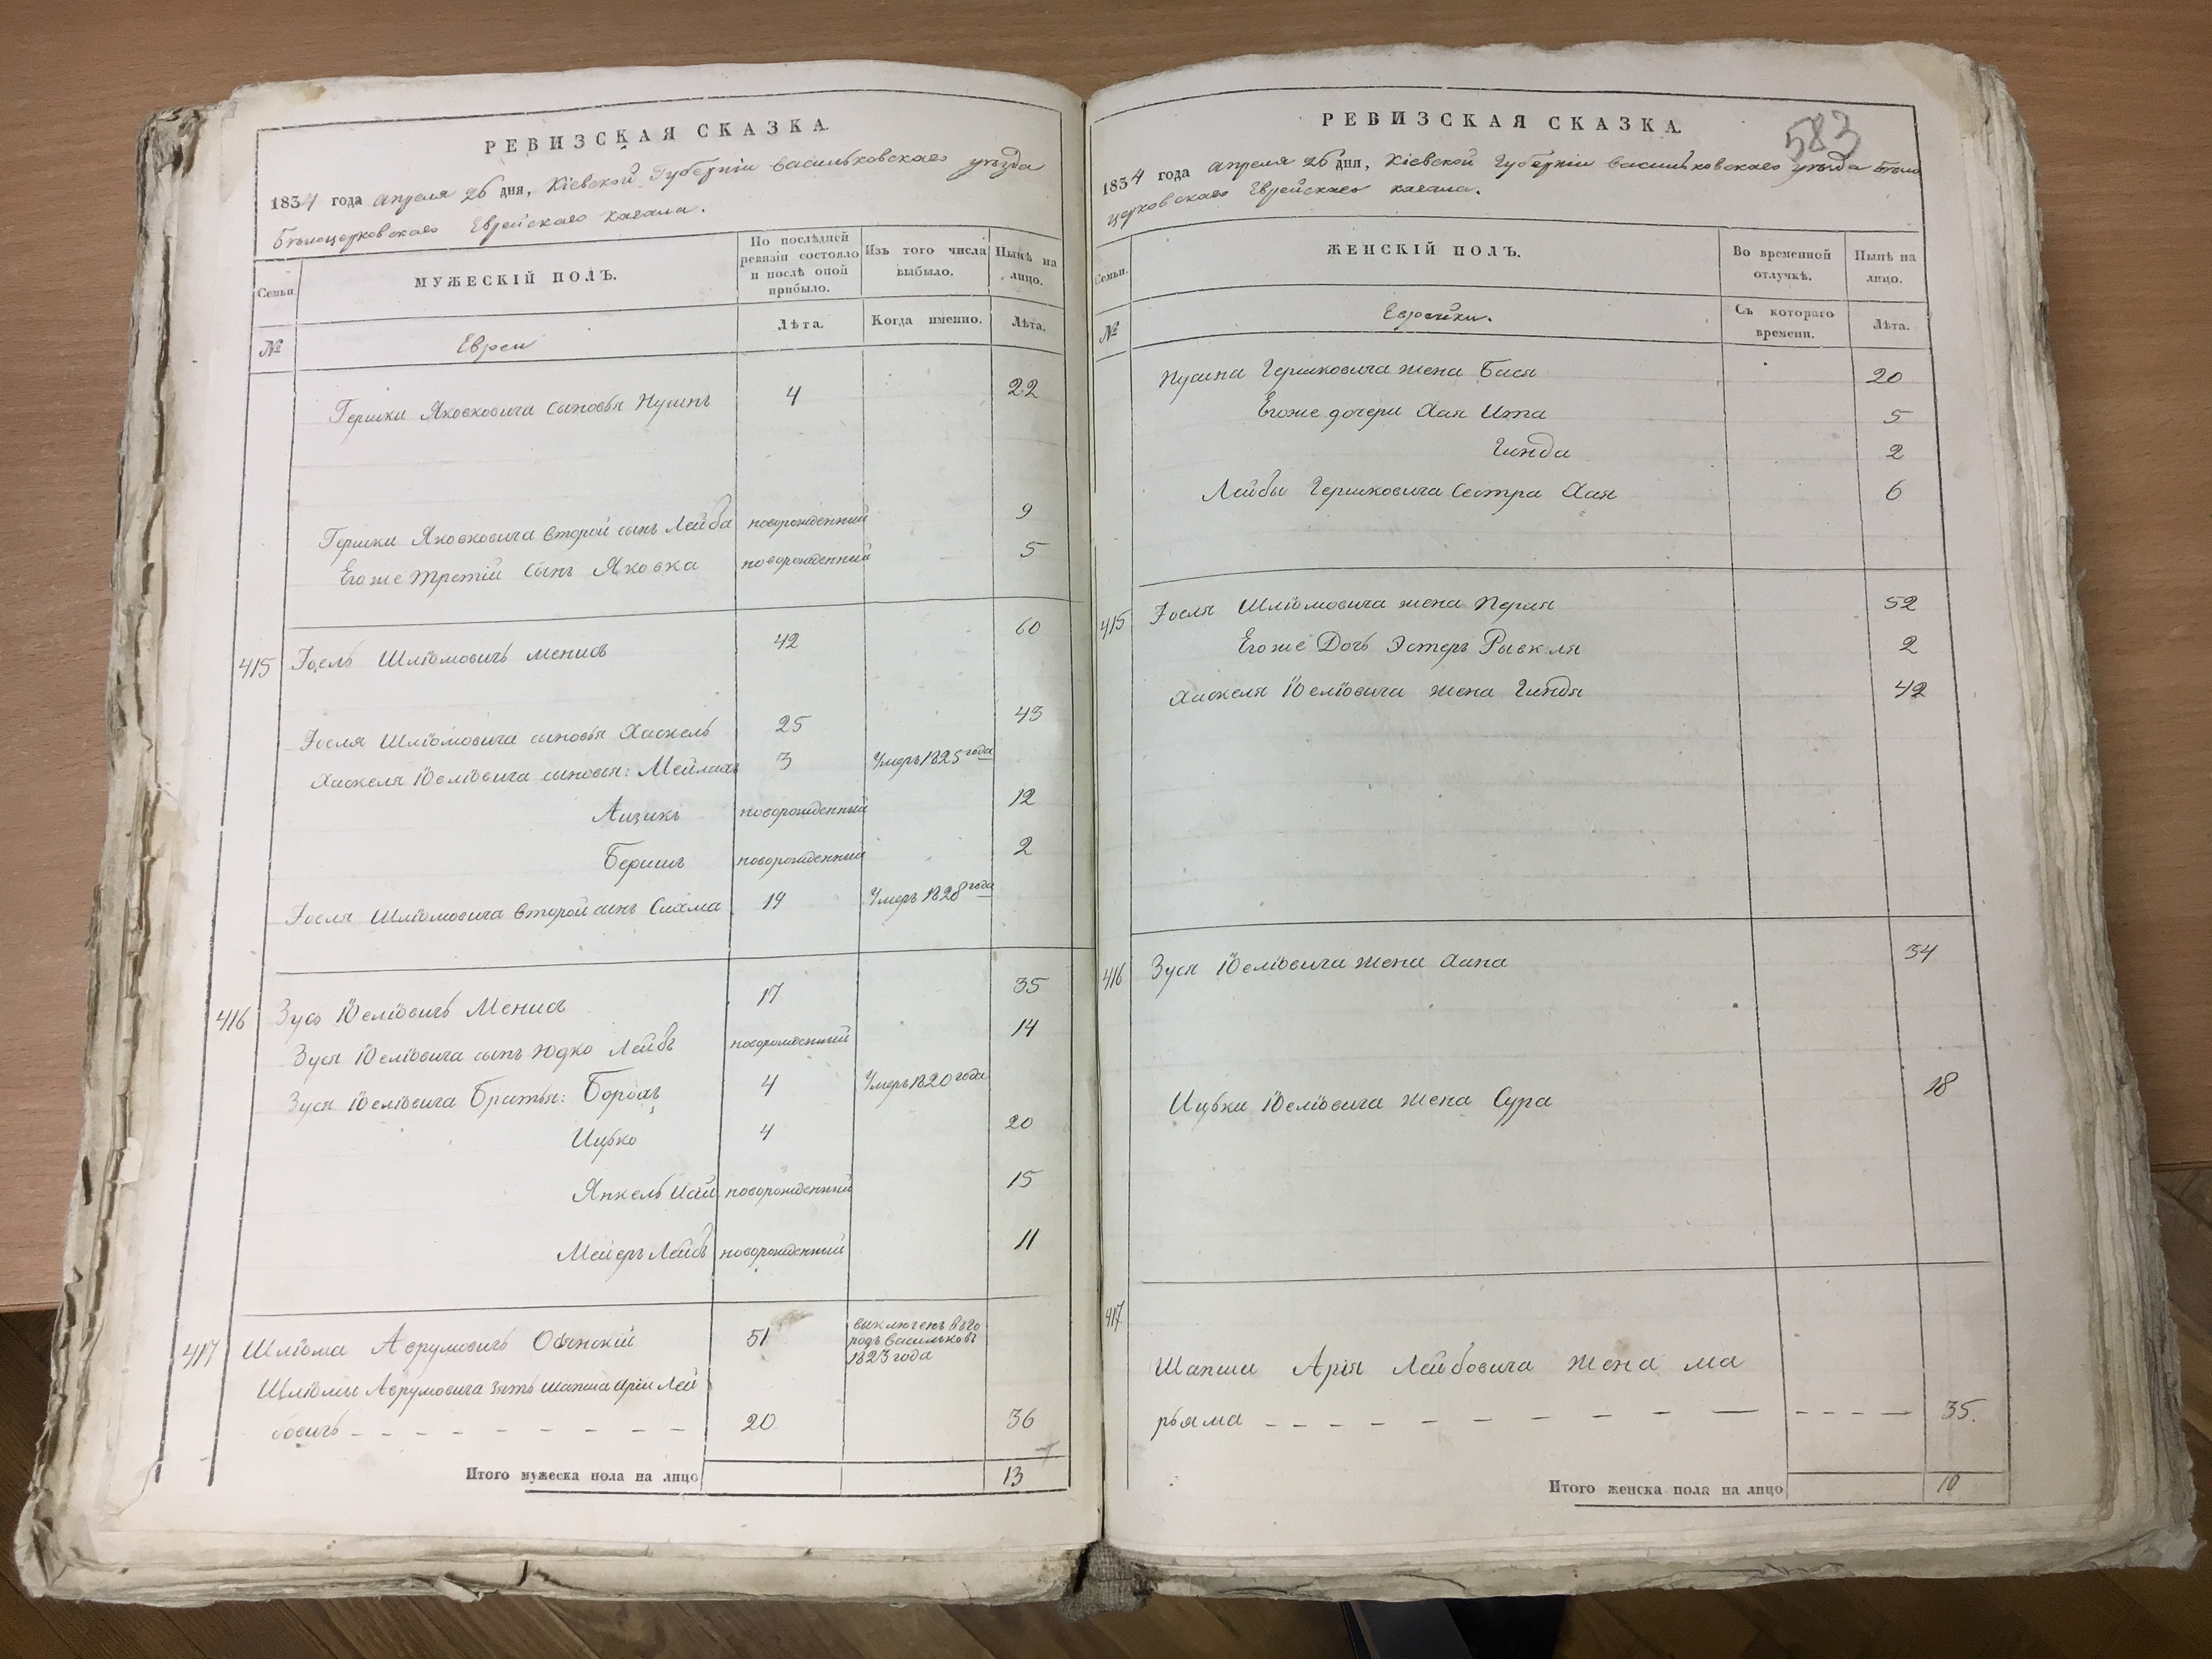 РЕВИЗСКАЯ СКАЗКА.
1834 года апреля 26 дня, Кіевской Губерніи Васильковскаго уѣзда
Бѣлоцерковскаго Еврейскаго кагала.
Семьи.
МУЖЕСКІЙ ПОЛЪ.
По послѣдней ревизіи состояло и послѣ оной прибыло.
Изъ того числа выбыло.
Нынѣ на лицо.
№
Евреи
Лѣта.
Когда именно.
Лѣта.
Гершки Яковковича сыновья Нушнъ 4 22
Гершки Яковковича второй сынъ Лейба новорожденный 9
Егоже третій сынъ Яковка новорожденный 5
415 Іосель Шліомовичъ Менисъ 42 60
Іоселя Шліомовича сыновья Хаскель 25 43
Хаскеля Іоселіовича сыновья: Мейлахъ 3 Умеръ 1825 года
Аизикъ новорожденный 12
Бершъ новорожденный 2
Іоселя Шліомовича второй сынъ Симха 19 Умеръ 1828 года
416 Зусь Іоселіовичъ Менисъ 17 35
Зуся Іоселіовича сынъ Юдко Лейбъ новорожденный 14
Зуся Іоселіовича Братья: Борохъ 4 Умеръ 1820 года
Ицько 4 20
Янкель новорожденный 15
Мейеръ Лейбъ новорожденный 11
417 Шліома Аврумовичъ 51 выключенъ въ го
родъ Васильковъ
1823 года
Шліомы Аврумовича зять Шапша Арія Лей
бовичъ - - - - - - - - - 20 36
Итого мужеска пола на лицо 13
РЕВИЗСКАЯ СКАЗКА.
583
1834 года апреля 26 дня, Кіевской Губерніи Васильковскаго уѣзда Бѣло
церковскаго Еврейскаго кагала.
Семьи.
ЖЕНСКІЙ ПОЛЪ.
Во временной отлучкѣ.
Нынѣ на лицо.
№
Еврейки.
Съ котораго времени.
Лѣта.
Нушна Гершковича жена Бася 20
Егоже дочери Хая Ита 5
Гинда 2
Лейбы Гершковича сестра Хая 6
415 Іоселя Шліомовича жена Перля 52
Егоже Дочь Эстеръ Рывкля 2
Хаскеля Іоселіовича жена Гиндя 42
416 Зуся Іоселіовича жена Хана 34
Ицьки Іоселіовича жена Сура 18
417
Шапши Арія Лейбовича жена Ма
рьяма - - - - - - - - - - - - 35.
Итого женска пола на лицо 10